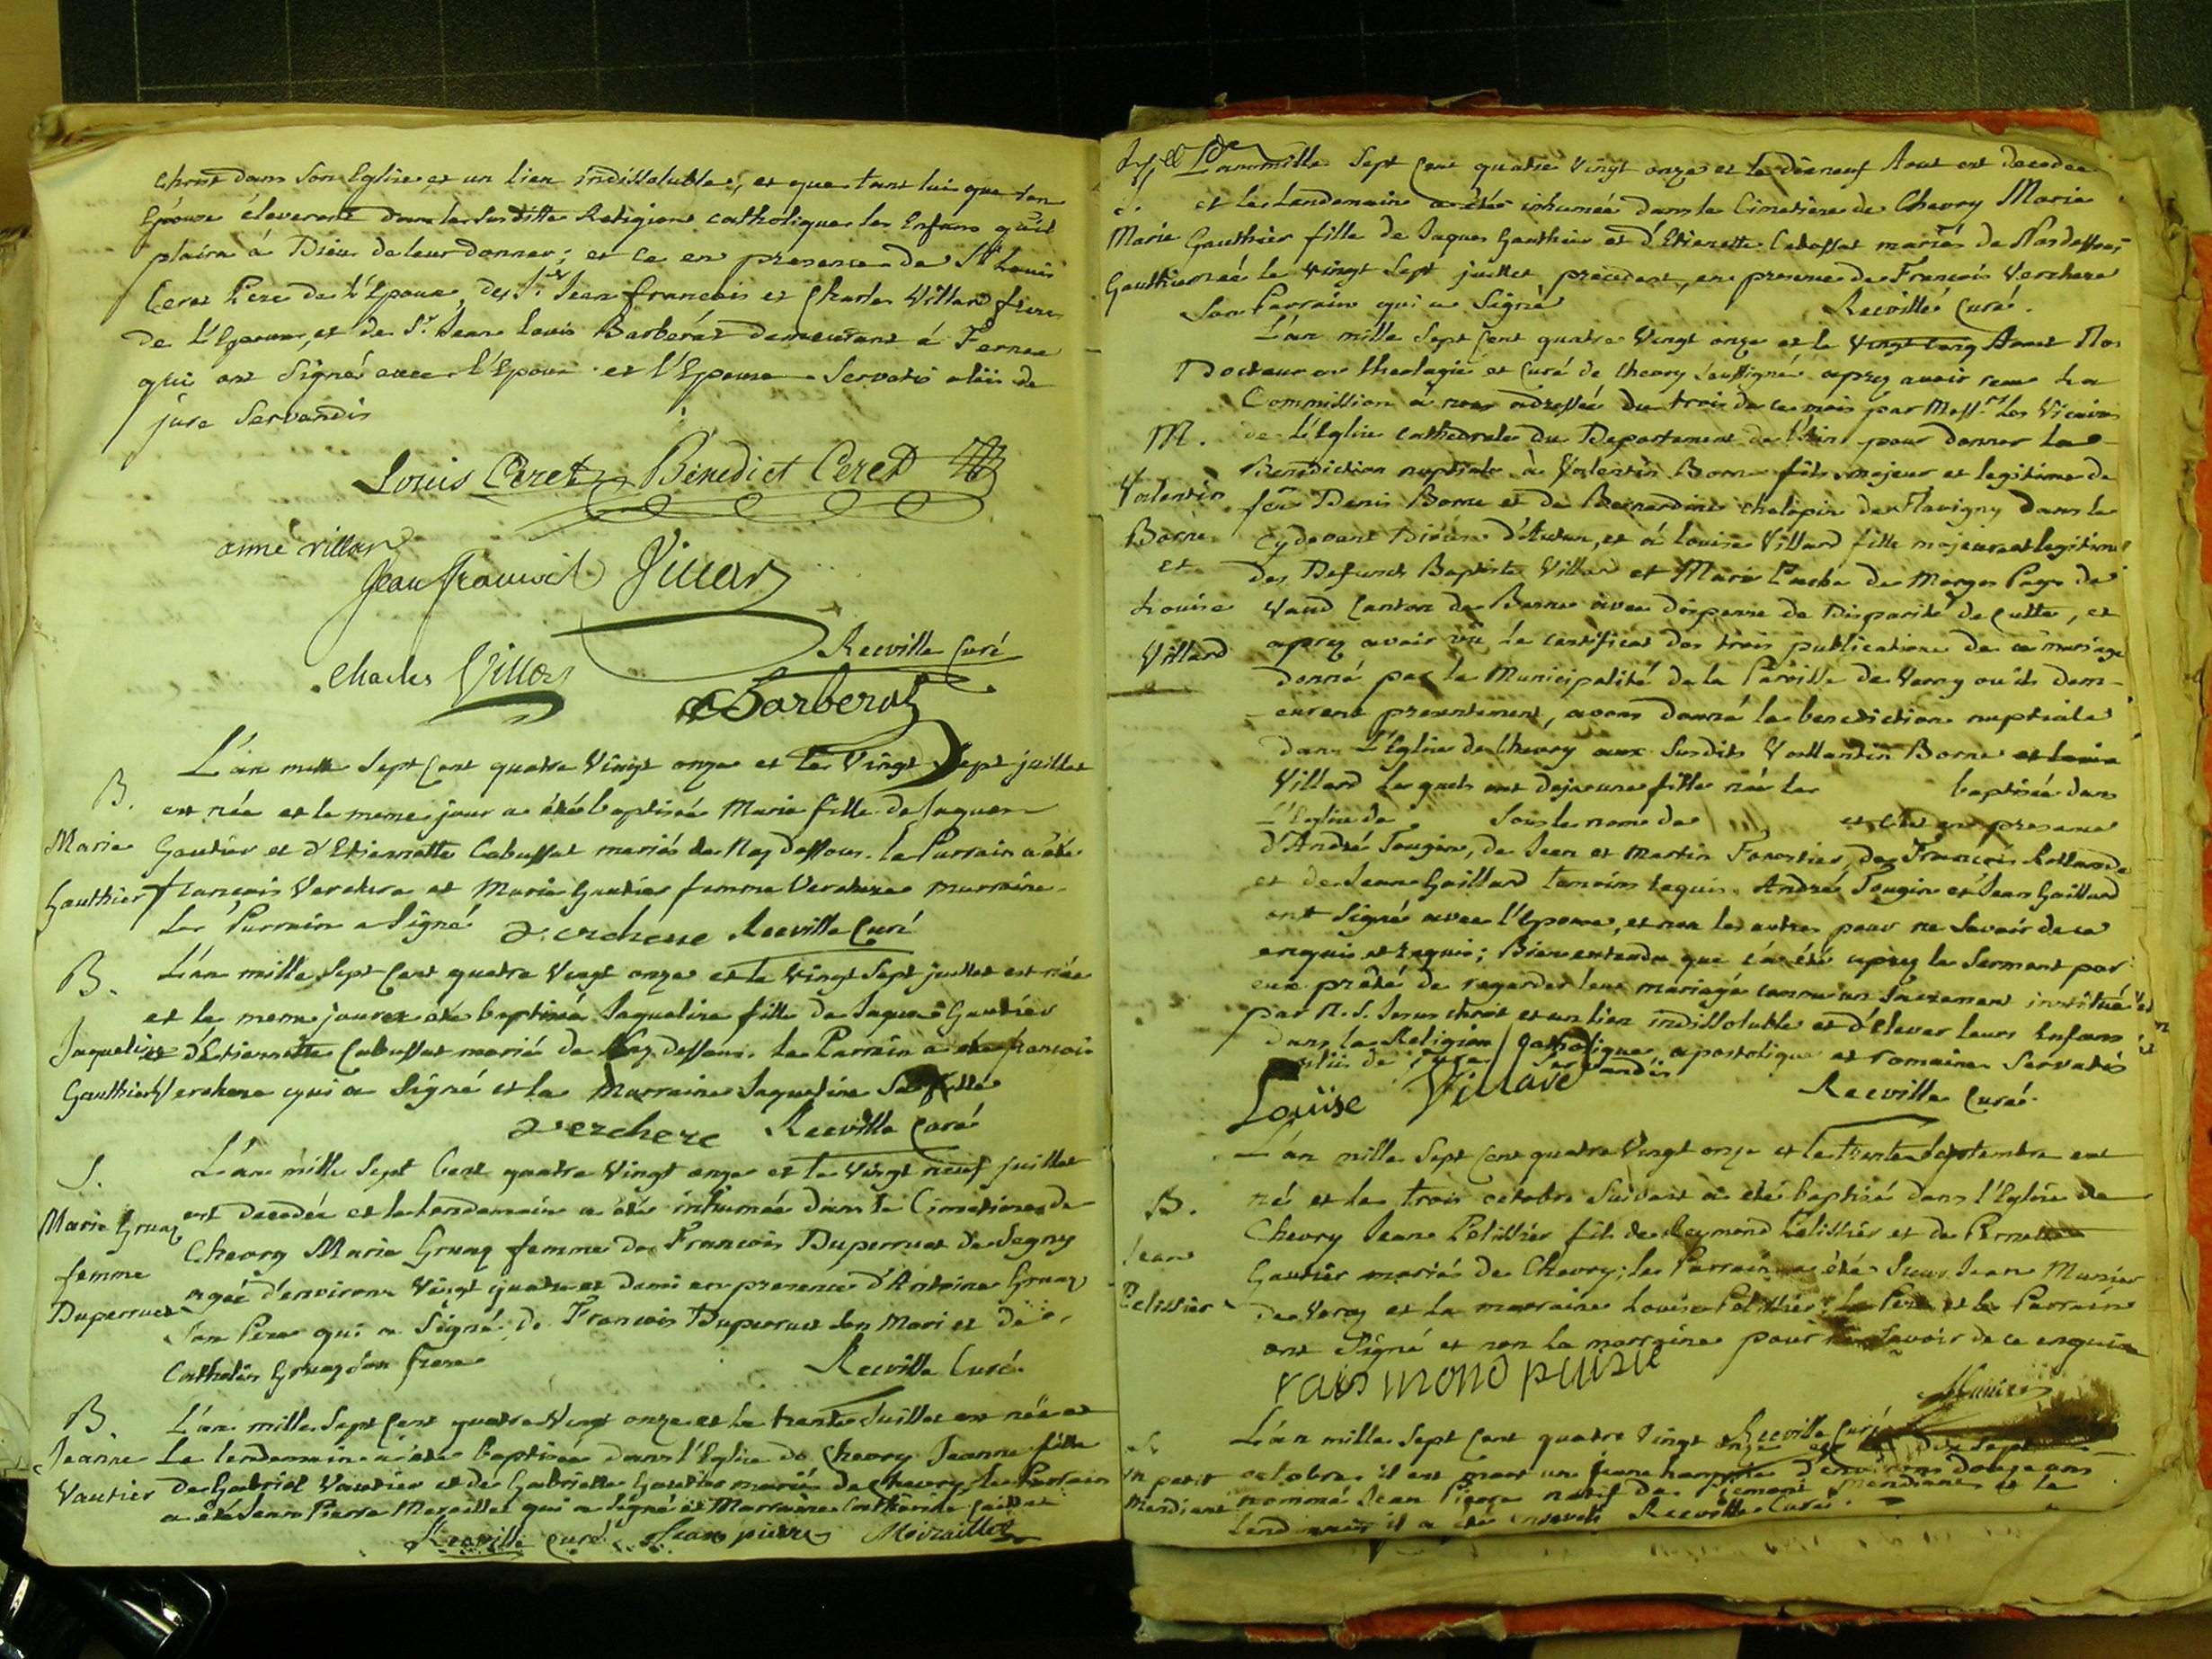 Christ dans Son Eglise et un lien indissoluble, et que tant lui que son
Epouse éleveront dans la Susditte Religion catholique les Enfans qu'il
plaira à Dieu de leur donner; et ce en presence de Sr Louis
Ceret Pere de l'Epoux, des Srs Jean francois et Charles Villard freres
de l'Epouse, et de Sr Jean Louis Barberat demeurant à Fernex
qui ont Signé avec l'Epoux et l'Epouse Servatis aliis de
jure Servandis
Louis Ceret Bénédict Ceret
anné villar
Jean francoit Villar
Reeville Curé
Charles Villar
Barberat
L'an mille Sept Cent quatre Vingt onze et le Vingt Sept juillet
B. est née et le meme jour a été baptisée Marie fille de Jaques
Marie Gautier et d'Etienette Cabussat mariés de Naz dessous. le Parrain a été
Gauthier françois Verchere et Marie Gautier femme Verchere marraine.
Le Parrain a Signé verchere Reeville Curé
B. L'an mille Sept Cent quatre Vingt onze et le Vingt Sept juillet est née
et le meme jour a été baptisée Jaqueline fille de Jaques Gautier
Jaqueline et d'Etienette Cabussat mariés de Naz dessous. le Parrain a été francois
Gauthier Verchere qui a Signé et la Marraine Jaqueline Sa fille
verchere Reeville Curé
S. L'an mille Sept Cent quatre Vingt onze et le Vingt neuf juillet
est decedée et le lendemain a été inhumée dans le Cimetiere de
Marie Gruaz Chevry Marie Gruaz femme de Francois Duperruet de Segny
femme agée d'environ Vingt quatre et demi en presence d'Antoine Gruaz
Duperruet Son Pere qui a Signé, de Francois Duperruet Son Mari et de
Cathelin Gruaz Son frere Reeville Curé
B. L'an mille Sept Cent quatre Vingt onze et le trente Juillet est née et
Jeanne Le lendemain a été baptisée dans l'Eglise de Chevry Jeanne fille
Vautier De Gabriel Vautier et de Gabrielle Gautier mariés de Chevry, le Parrain
a été Jean Pierre Meraillet qui a Signé et Marraine Catherine
Reeville Curé Jean pierre Moiraillet
L'an mille Sept Cent quatre Vingt onze et le dix neuf Aout est decedée
S. et le Lendemain a été inhumée dans le Cimetiere de Chevry Marie
Marie Gauthier fille de Jaques Gauthier et d'Etienette Cabussat mariés de Naz dessous
Gauthier née le Vingt Sept juillet précedent, en presence de Francois Verchere
Son Parrain qui a Signé Reeville Curé.
L'an mille Sept Cent quatre Vingt onze et le Vingt Cinq Aout No
Docteur en theologie et Curé de Chevry Soussigné après avoir reçu La
Commission à nous adressée du trois de ce mois par Messrs Les Vicaires
M. de l'Eglise Cathedrale du Departement de l'Ain pour donner La
Valentin Benediction nuptiale à Valentin Borne fils majeur et legitime de
feu Denis Borne et de Bernardine Chalopin de Flavigny Dans le
Borne Cydevant Diocese d'Autun, et à Louise Villard fille majeure et legitime
et des Defunts Baptiste Villard et Marie de Morges Pays de
Louise Vaud Canton de Berne avec dispense de Disparité de Culte, et
Villard après avoir vu le Certificat des trois publications de ce mariage
Donné par la Municipalité de la Paroisse de Versoy ou ils dem-
eurent presentement, avons donné la benediction nuptiale
dans l'Eglise de Chevry aux Susdits Vallantin Borne et Louise
Villard Lesquels ont deja une fille née le baptisée dans
l'Eglise de Sous le nom de et ce en presence
d'André Tougin, de Jean et Martin Forestier, de Francois
et de Jean Gaillard temoins requis. André Tougin et Jean Gaillard
ont Signé avec l'Epouse, et non les autres pour ne Savoir de ce
enquis et requis; Bien entendu que c'a été après le Serment par
eux prêté de regarder leur mariage comme un Sacrement institué
par N. S. Jesus Christ et un lien indissoluble et d'élever leurs Enfans
dans la Religion Catholique apostolique et romaine Servatis
aliis de jure Servandis
Louise Villard Reeville Curé
L'an mille Sept Cent quatre Vingt onze et le trente Septembre est
B. né et le trois octobre Suivant a été baptisé dans l'Eglise de
Jean Chevry Jean Pelissier fils de Reymond Pelissier et de Pernette
Gautier mariés de Chevry; le Parrain a été Sieur Jean Munier
Pelissier de Versoy et la marraine Louise Pelissier; le Pere et le Parrain
ont Signé et non la marraine pour ne Savoir de ce enquise
raismond Munier
Reeville Curé
S. L'an mille Sept Cent quatre Vingt onze et le dix Sept
Un petit octobre il est mort un jeune homme d'environ douze ans
Mendiant nommé Jean Pierre natif de Piemont Mendiant et le
lendemain il a été enseveli Reeville Curé.